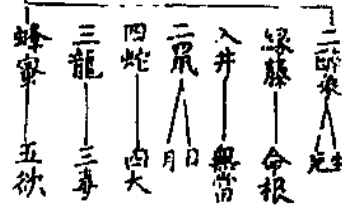 二醉象 生死
緣藤 命根
入井 無常
二鼠 日月
四蛇 四大
三龍 三毒
蜂蜜 五欲